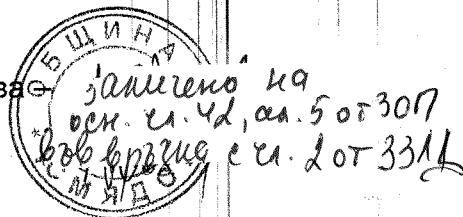 ОБЩИНА
ва
Заличено на
осн. чл. 42, ал. 5 от ЗОП
във връзка с чл. 2 от ЗЗЛД